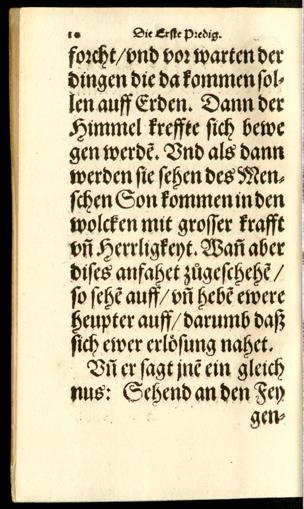 10 Die Erste Predig.
forcht/vnd vor warten der
dingen die da kommen sol-
len auff Erden. Dann der
Himmel kreffte sich bewe
gen werdẽ. Vnd als dann
werden sie sehen des Men-
schen Son kommen in den
wolcken mit grosser krafft
vñ Herrligkeyt. Wañ aber
dises anfahet zůgeschehẽ/
so sehẽ auff/vñ hebẽ ewere
heupter auff/darumb daß
sich ewer erlösung nahet.
Vñ er sagt jnẽ ein gleich
nus: Sehend an den Fey
gen-